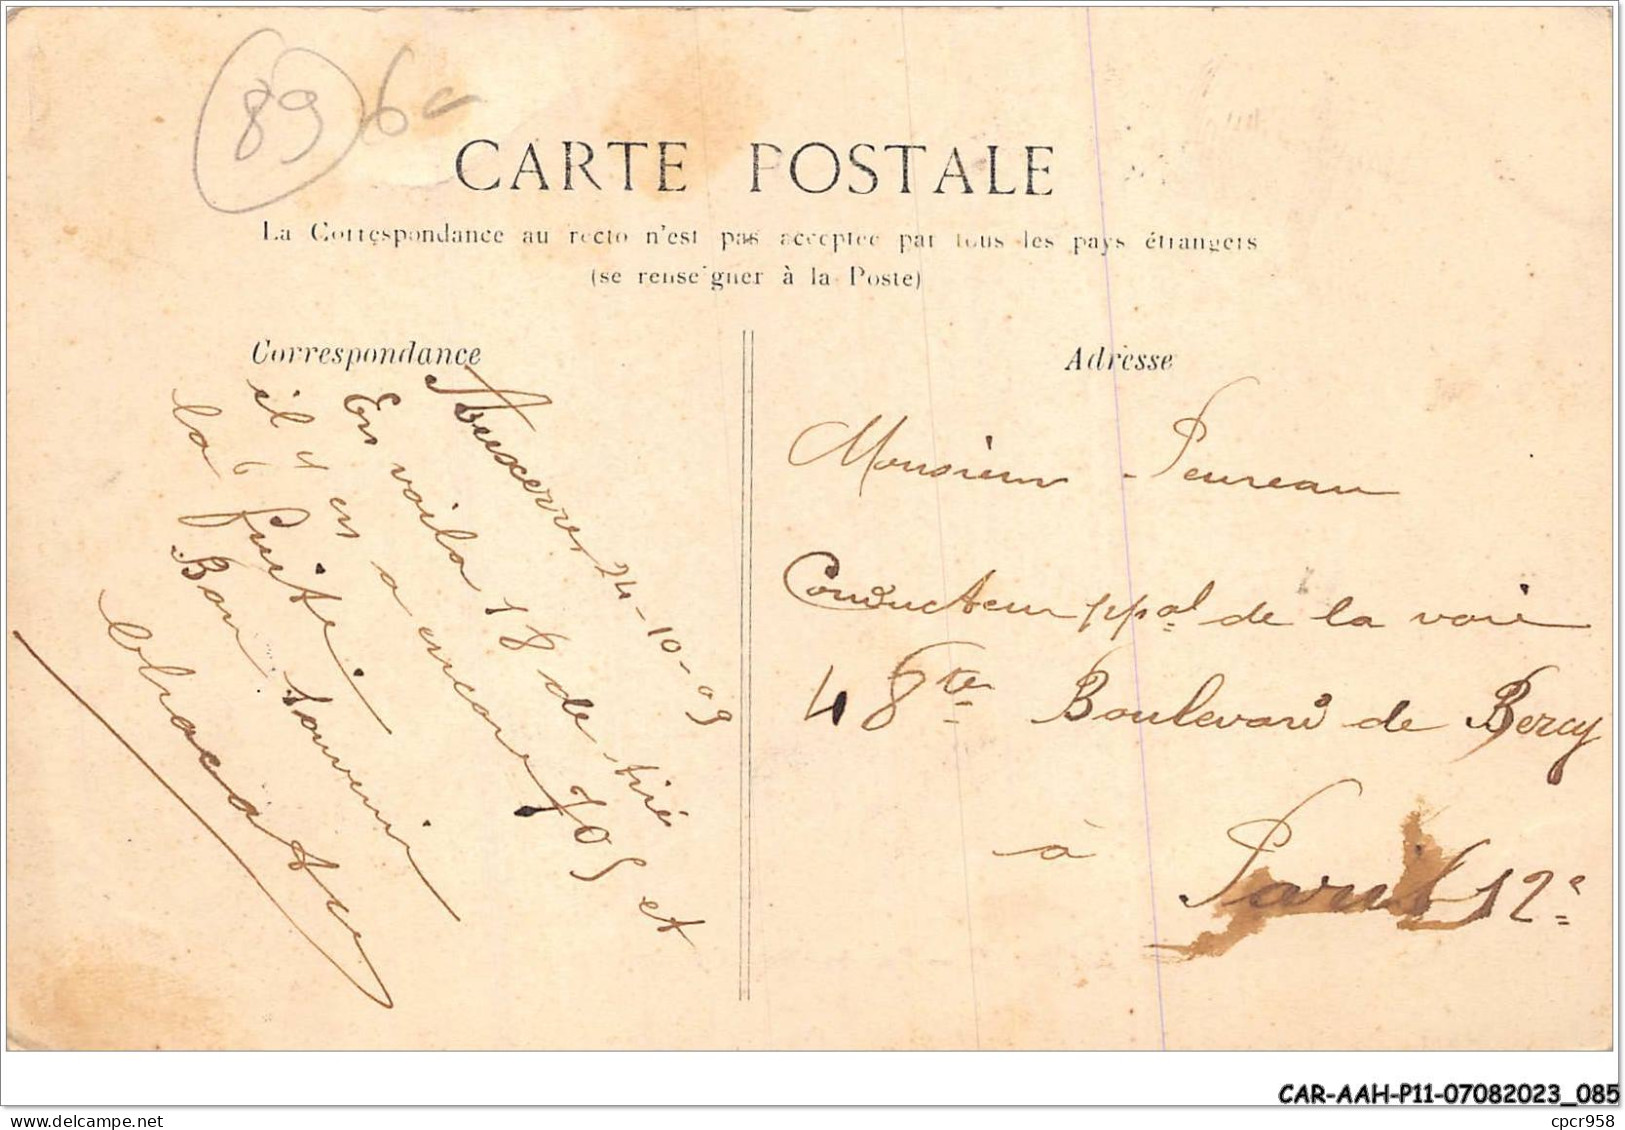 89 6
CARTE POSTALE
La Correspondance au recto n'est pas acceptée par tous les pays étrangers
(se renseigner à la Poste)
Correspondance
Auxerre, 24-10-09
En voila 18 de tiré
il y en a encore 705 et
la fuite.
Bon souvenir
Adresse
Monsieur Peureau
Conducteur ppal de la voie
48 te Boulevard de Bercy
à
Paris 12e
CAR-AAH-P11-07082023_085
cpcr958